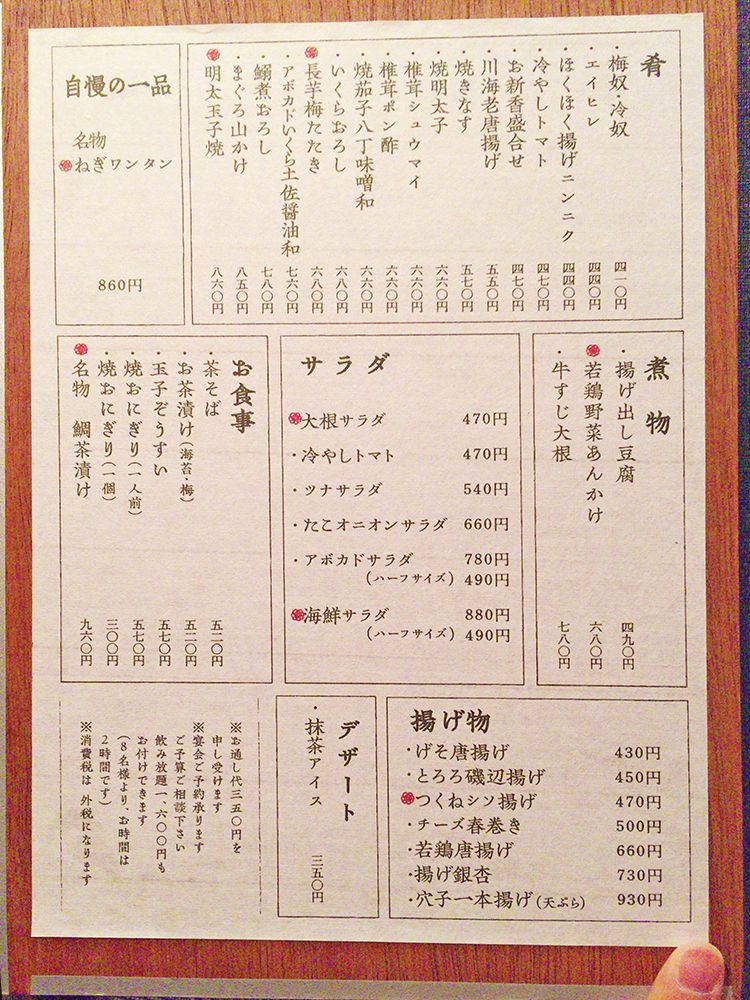 肴
・梅奴・冷奴 四一〇円
・エイヒレ 四四〇円
・ほくほく揚げニンニク 四四〇円
・冷やしトマト 四七〇円
・お新香盛合せ 四七〇円
・川海老唐揚げ 五五〇円
・焼きなす 五七〇円
・焼明太子 六六〇円
・椎茸シュウマイ 六六〇円
・椎茸ポン酢 六六〇円
・焼茄子八丁味噌和 六六〇円
・いくらおろし 六八〇円
長芋梅たたき 六八〇円
・アボカドいくら土佐醤油和 七六〇円
・鰯煮おろし 七八〇円
・まぐろ山かけ 八五〇円
明太玉子焼 八六〇円
自慢の一品
名物
ねぎワンタン
860円
煮物
・揚げ出し豆腐 四九〇円
若鶏野菜あんかけ 六八〇円
・牛すじ大根 七八〇円
サラダ
大根サラダ 470円
・冷やしトマト 470円
・ツナサラダ 540円
・たこオニオンサラダ 660円
・アボカドサラダ 780円
(ハーフサイズ) 490円
海鮮サラダ 880円
(ハーフサイズ) 490円
お食事
・茶そば 五二〇円
・お茶漬け(海苔・梅) 五二〇円
・玉子ぞうすい 五七〇円
・焼おにぎり(一人前) 五七〇円
・焼おにぎり(一個) 三〇〇円
名物 鯛茶漬け 九六〇円
揚げ物
・げそ唐揚げ 430円
・とろろ磯辺揚げ 450円
つくねシソ揚げ 470円
・チーズ春巻き 500円
・若鶏唐揚げ 660円
・揚げ銀杏 730円
・穴子一本揚げ(天ぷら) 930円
デザート
・抹茶アイス 三五〇円
※お通し代三五〇円を
申し受けます
※宴会ご予約承ります
ご予算ご相談下さい
飲み放題一、六〇〇円も
お付けできます
(8名様より、お時間は
2時間です)
※消費税は 外税になります